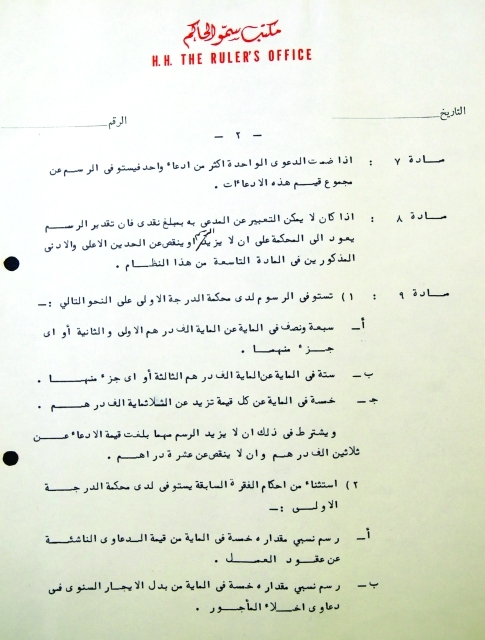 مكتب سمو الحاكم
H. H. THE RULER'S OFFICE
التاريخ
الرقم
— ٢ —
مادة ٧ : اذا ضمت الدعوى الواحدة اكثر من ادعاء واحد فيستوفى الرسم عن
مجموع قيم هذه الادعاءات .
مادة ٨ : اذا كان لا يمكن التعبير عن المدعى به بمبلغ نقدى فان تقدير الرسم
يعود الى المحكمة على ان لا يزيد الرسم او ينقص عن الحدين الاعلى والادنى
المذكورين في المادة التاسعة من هذا النظام .
مادة ٩ : ١) تستوفى الرسوم لدى محكمة الدرجة الاولى على النحو التالي :—
أ— سبعة ونصف في الماية عن الماية الف درهم الاولى والثانية أو اى
جزء منهما .
ب— ستة في الماية عن الماية الف درهم الثالثة أو اى جزء منها .
جـ— خمسة في الماية عن كل قيمة تزيد عن الثلاثماية الف درهم .
ويشترط في ذلك ان لا يزيد الرسم مهما بلغت قيمة الادعاء عن
ثلاثين الف درهم وان لا ينقص عن عشرة دراهم .
٢) استثناء من احكام الفقرة السابقة يستوفى لدى محكمة الدرجة
الاولى :—
أ— رسم نسبي مقداره خمسة في الماية من قيمة الدعاوى الناشئة
عن عقود العمل .
ب— رسم نسبي مقداره خمسة في الماية من بدل الايجار السنوى في
دعاوى اخلاء المأجور .